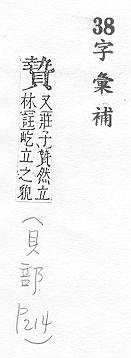 38字彙補
贄又莊子贄然立
林註屹立之貌
(貝部P214)